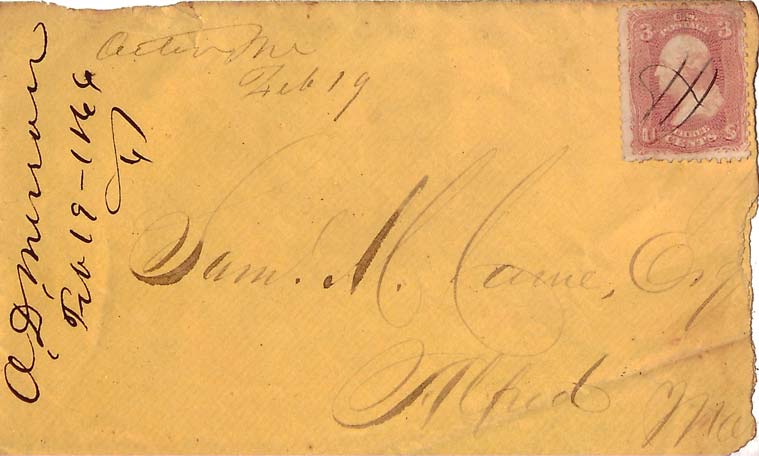 Acton Me
Feb 19
3 U.S. 3
POSTAGE
U THREE S
CENTS
Sam. M. Came, Esq
Alfred
Me
A. D. Merrow
Feb 19 - 1868